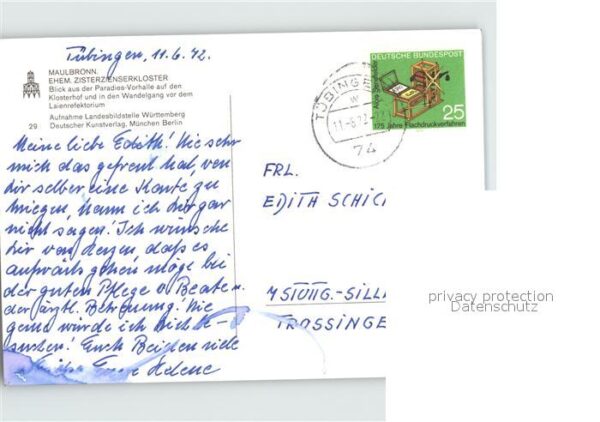 Tübingen, 11.6.72.
MAULBRONN.
EHEM. ZISTERZIENSERKLOSTER
Blick aus der Paradies-Vorhalle auf den
Klosterhof und in den Wandelgang vor dem
Laienrefektorium
Aufnahme Landesbildstelle Württemberg
29 Deutscher Kunstverlag, München Berlin
Meine liebe Edith! Wie sehr
mich das gefreut hat, von
Dir selber eine Karte zu
kriegen, kann ich Dir gar
nicht sagen! Ich wünsche
Dir von Herzen daß es
aufwärts gehen möge bei
der guten Pflege v. Beate u.
der ärztl. Betreuung! Wie
gerne würde ich Dich be-
suchen! Euch Beiden viele
Eure Helene
DEUTSCHE BUNDESPOST
Alois Senefelder
25
175 Jahre Flachdruckverfahren
TÜBINGEN
11.-6.72
74
FRL.
EDITH SCHIC
7 STUTTG.-SILL
TROSSINGE
privacy protection
Datenschutz